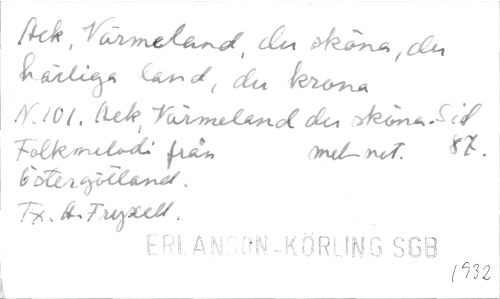 Ack, Värmeland, du sköna, du
härliga land, du krona
N.101. Ack, Värmeland du sköna. Sid
Folkmelodi från mel-not. 87.
Östergötland.
Tx. A. Fryxell.
ERLANSON-KÖRLING SGB
1932